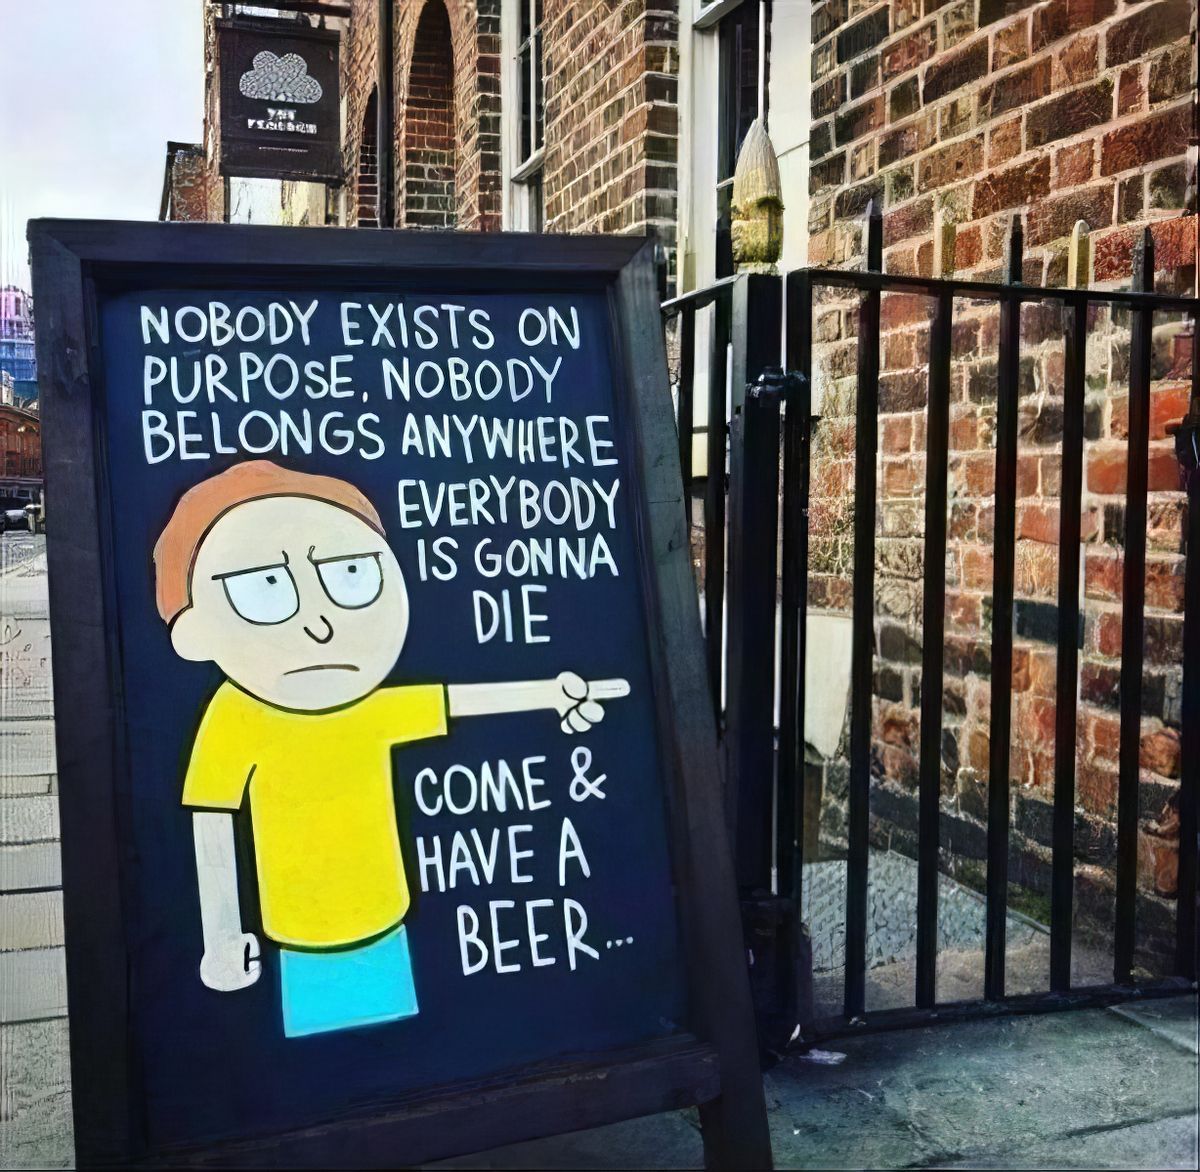 NOBODY EXISTS ON
PURPOSE. NOBODY
BELONGS ANYWHERE
EVERYBODY
IS GONNA
DIE
COME &
HAVE A
BEER...